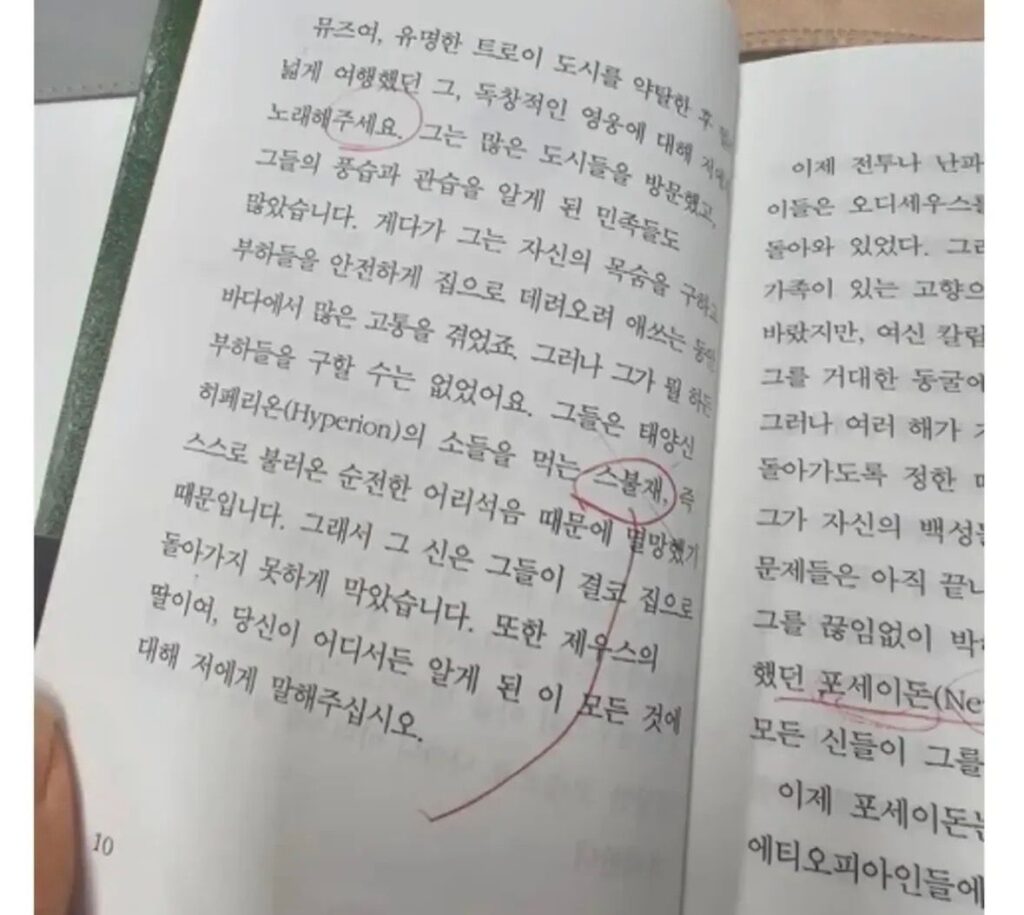 뮤즈여, 유명한 트로이 도시를 약탈한 후
넓게 여행했던 그, 독창적인 영웅에 대해
노래해주세요. 그는 많은 도시들을 방문했고,
그들의 풍습과 관습을 알게 된 민족들도
많았습니다. 게다가 그는 자신의 목숨을 구하고
부하들을 안전하게 집으로 데려오려 애쓰는 동안
바다에서 많은 고통을 겪었죠. 그러나 그가 뭘 하든
부하들을 구할 수는 없었어요. 그들은 태양신
히페리온(Hyperion)의 소들을 먹는 스불재, 즉
스스로 불러온 순전한 어리석음 때문에 멸망했기
때문입니다. 그래서 그 신은 그들이 결코 집으로
돌아가지 못하게 막았습니다. 또한 제우스의
딸이여, 당신이 어디서든 알게 된 이 모든 것에
대해 저에게 말해주십시오.
10
이제 전투나 난파
이들은 오디세우스를
돌아와 있었다. 그러
가족이 있는 고향으
바랐지만, 여신 칼립
그를 거대한 동굴에
그러나 여러 해가
돌아가도록 정한
그가 자신의 백성들
문제들은 아직 끝나
그를 끊임없이 박
했던 포세이돈(Ne
모든 신들이 그를
이제 포세이돈은
에티오피아인들에